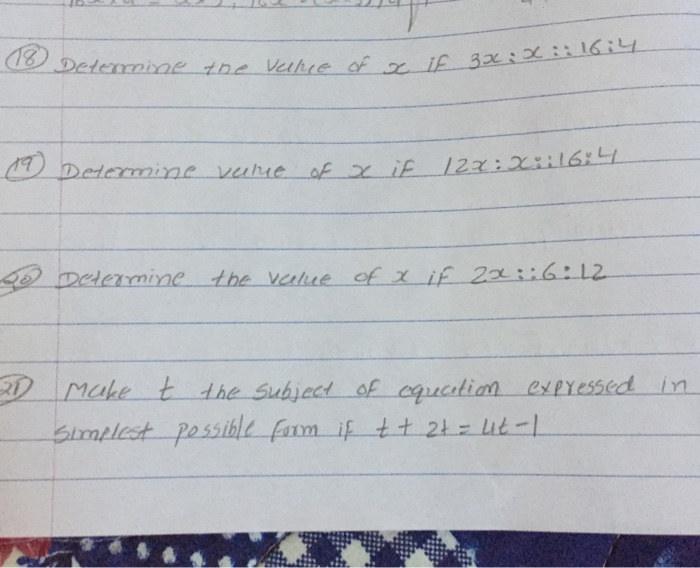 18 Determine the value of x if 3x : x :: 16 : 4
19 Determine value of x if 12x : x :: 16 : 4
20 Determine the value of x if 2x :: 6 : 12
21 Make t the subject of equation expressed in
simplest possible form if t + 2t = 4t - 1